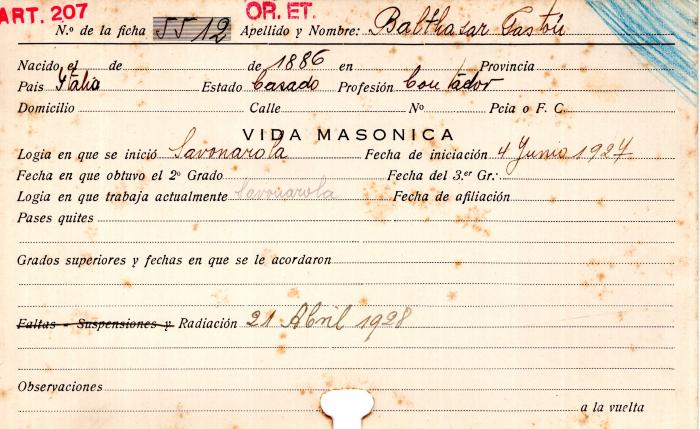 ART. 207 OR. ET.
N.º de la ficha 5512 Apellido y Nombre: Balthasar Gastón
Nacido el de de 1886 en Provincia
Pais Italia Estado Casado Profesión Contador
Domicilio Calle Nº Pcia o F. C.
VIDA MASONICA
Logia en que se inició Savonarola Fecha de iniciación 4 Junio 1927
Fecha en que obtuvo el 2º Grado Fecha del 3.er Gr.:
Logia en que trabaja actualmente Savonarola Fecha de afiliación
Pases quites
Grados superiores y fechas en que se le acordaron
Faltas - Suspensiones y Radiación 21 Abril 1928
Observaciones
a la vuelta